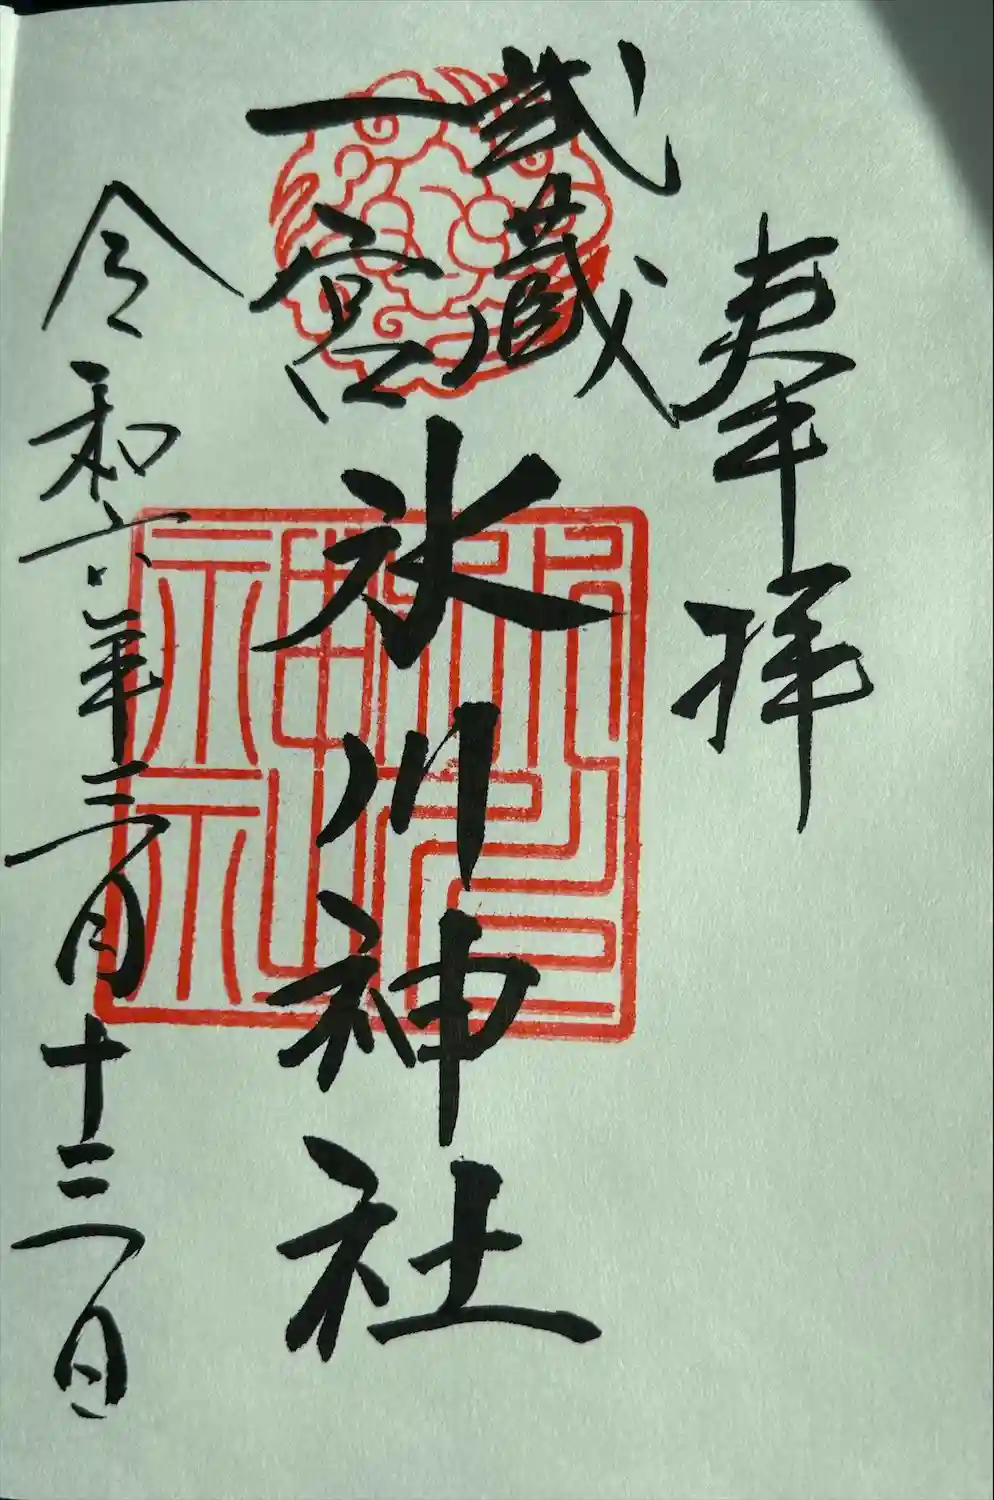 奉拝
武蔵
一宮
氷川神社
令和六年三月十三日